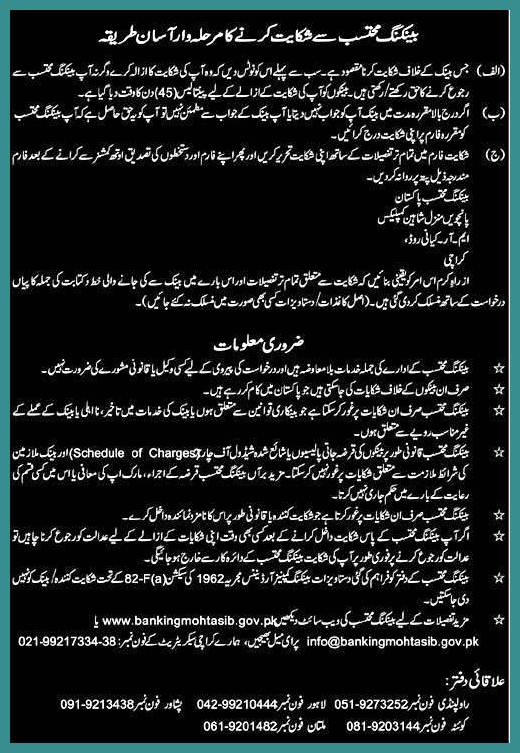 بینکنگ محتسب سے شکایت کرنے کا مرحلہ وار آسان طریقہ
(الف) جس بینک کے خلاف شکایت کرنا مقصود ہے۔ سب سے پہلے اس کو نوٹس دیں کہ وہ آپ کی شکایت کا ازالہ کرے وگرنہ آپ بینکنگ محتسب سے
رجوع کرنے کا حق رکھتے/رکھتی ہیں۔ بینکوں کو آپ کی شکایت کے ازالے کے لیے پینتالیس (45) دن کا وقت دیا گیا ہے۔
(ب) اگر درج بالا مقررہ مدت میں بینک آپ کو جواب نہیں دیتا یا آپ بینک کے جواب سے مطمئن نہیں تو آپ کو یہ حق حاصل ہے کہ آپ بینکنگ محتسب
کو مقررہ فارم پر اپنی شکایت درج کرائیں۔
(ج) شکایت فارم میں تمام تر تفصیلات کے ساتھ اپنی شکایت تحریر کریں اور پھر اپنے فارم اور دستخطوں کی تصدیق اوتھ کمشنر سے کرانے کے بعد فارم
مندرجہ ذیل پتہ پر روانہ کر دیں۔
بینکنگ محتسب پاکستان
پانچویں منزل شاہین کمپلیکس
ایم۔آر۔کیانی روڈ،
کراچی
از راہ کرم اس امر کو یقینی بنائیں کہ شکایت سے متعلق تمام تر تفصیلات اور اس بارے میں بینک سے کی جانے والی خط و کتابت کی جملہ کاپیاں
درخواست کے ساتھ منسلک کر دی گئی ہیں۔ (اصل کاغذات/دستاویزات کسی بھی صورت میں منسلک نہ کئے جائیں)۔
ضروری معلومات
☆ بینکنگ محتسب کے ادارے کی جملہ خدمات بلا معاوضہ ہیں اور درخواست کی پیروی کے لیے کسی وکیل یا قانونی مشورے کی ضرورت نہیں۔
☆ صرف ان بینکوں کے خلاف شکایات کی جاسکتی ہیں جو پاکستان میں کام کر رہے ہیں۔
☆ بینکنگ محتسب صرف ان شکایات پر غور کر سکتا ہے جو بینکاری قوانین سے متعلق ہوں یا بینک کی خدمات میں تاخیر، نااہلی یا بینک کے عملے کے
غیر مناسب رویے سے متعلق ہوں۔
☆ بینکنگ محتسب قانونی طور پر بینکوں کی قرضہ جاتی پالیسیوں یا شائع شدہ شیڈول آف چارجز (Schedule of Charges) اور بینک ملازمین
کی شرائط ملازمت سے متعلق شکایات پر غور نہیں کر سکتا۔ مزید برآں بینکنگ محتسب قرضہ کے اجراء، مارک اپ کی معافی یا اس میں کسی قسم کی
رعایت کے بارے میں حکم جاری نہیں کرتا۔
☆ بینکنگ محتسب صرف ان شکایات پر غور کرتا ہے جو شکایت کنندہ یا قانونی طور پر اس کا نامزد نمائندہ داخل کرے۔
☆ اگر آپ بینکنگ محتسب کے پاس شکایت داخل کرنے کے بعد کسی بھی وقت اپنی شکایات کے ازالے کے لیے عدالت کو رجوع کرنا چاہیں تو
عدالت کو رجوع کرنے پر فوری طور پر آپ کی شکایت بینکنگ محتسب کے دائرہ کار سے خارج ہو جائیگی۔
☆ بینکنگ محتسب کے دفتر کو فراہم کی گئی دستاویزات بینکنگ کمپنیز آرڈیننس مجریہ 1962 کی سیکشن 82-F(a) کے تحت شکایت کنندہ/بینک کو نہیں
دی جاسکتیں۔
☆ مزید تفصیلات کے لیے بینکنگ محتسب کی ویب سائٹ دیکھیں www.bankingmohtasib.gov.pk یا
info@bankingmohtasib.gov.pk پر ای میل بھیجیں، ہمارے کراچی سیکرٹریٹ کے فون نمبر: 38-99217334-021
علاقائی دفتر:
راولپنڈی فون نمبر 051-9273252 لاہور فون نمبر 042-99210444 پشاور فون نمبر 091-9213438
کوئٹہ فون نمبر 081-9203144 ملتان فون نمبر 061-9201482